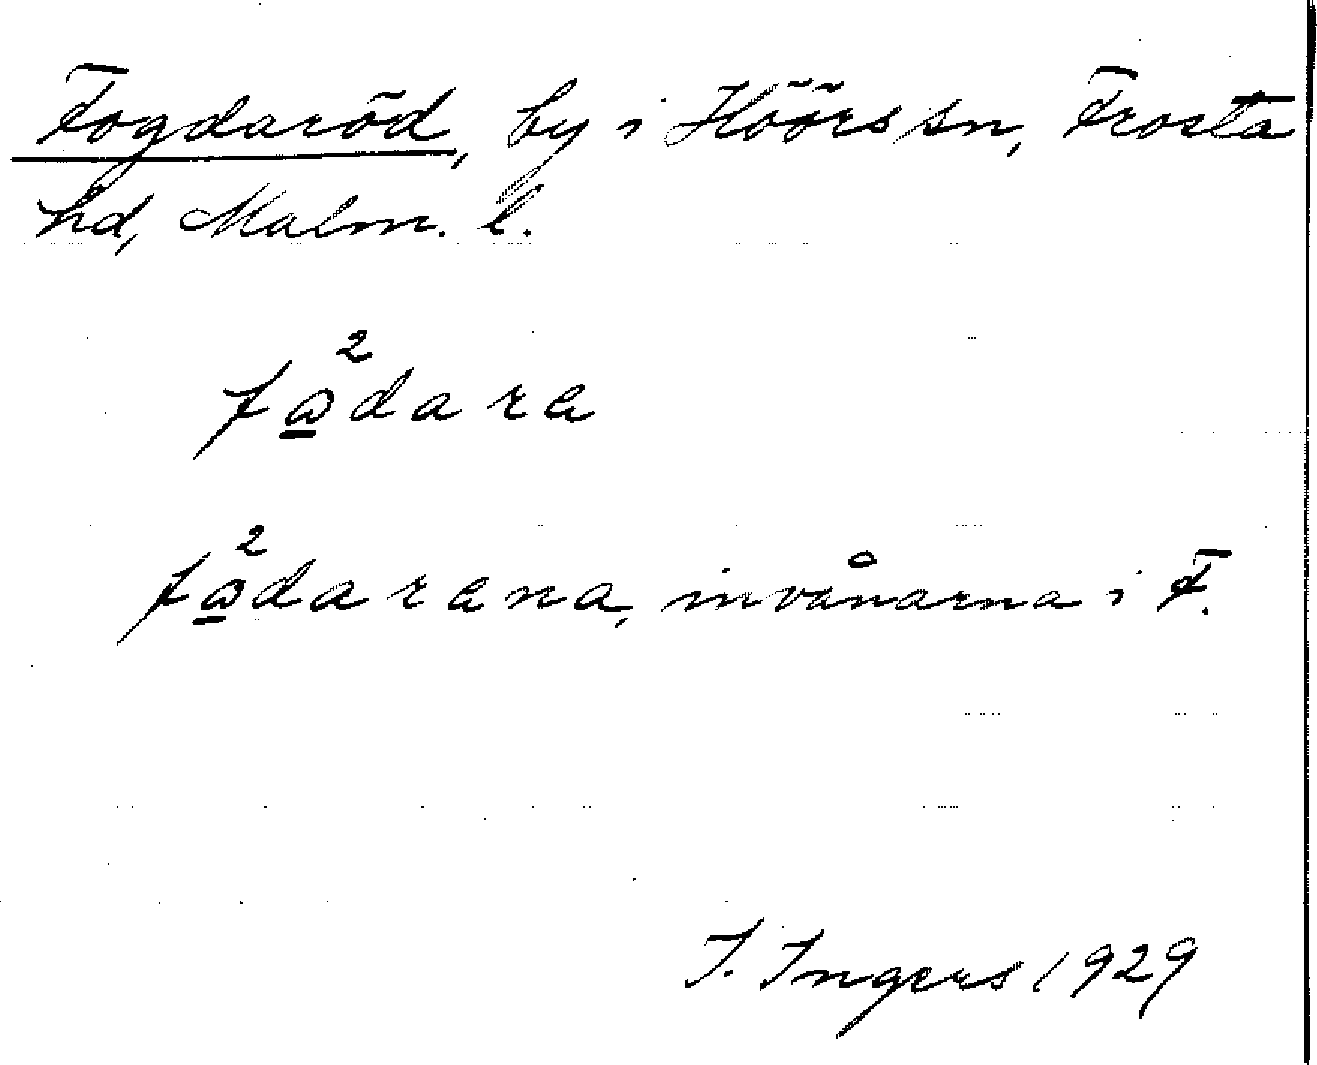 Fogdaröd, by i Höörs sn, Frosta
hd, Malm. l.
fa̲²dara
fa̲²darana, invånarna i F.
I. Ingers 1929